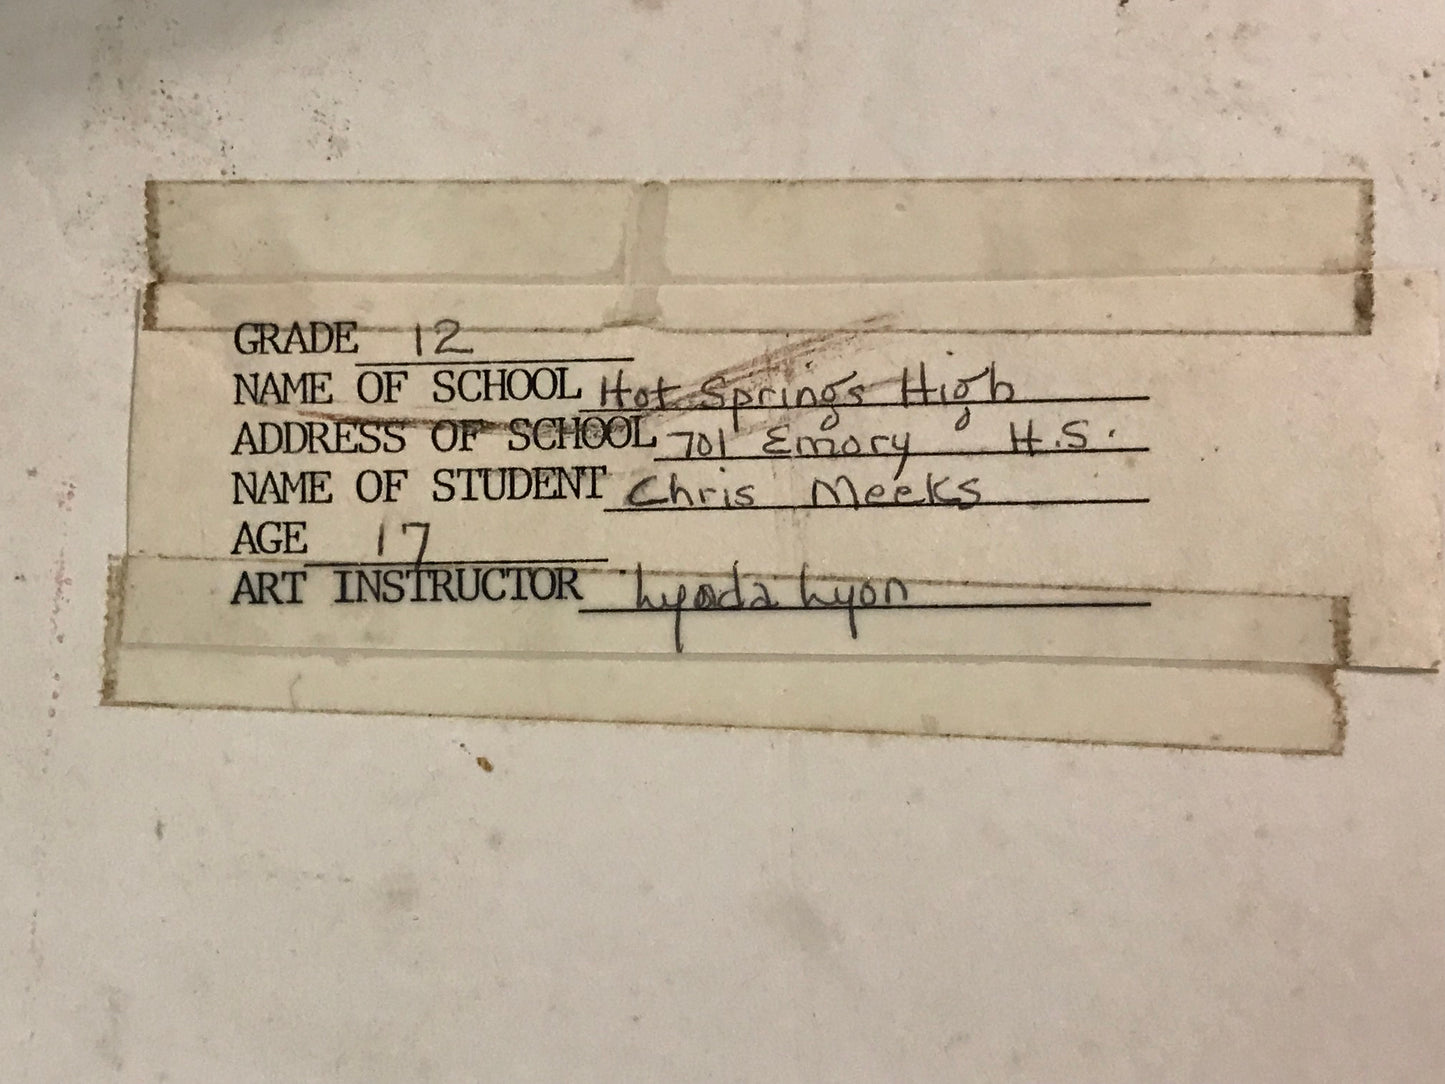 GRADE 12
NAME OF SCHOOL Hot Springs High
ADDRESS OF SCHOOL 701 Emory H.S.
NAME OF STUDENT Chris Meeks
AGE 17
ART INSTRUCTOR Lynda Lyon